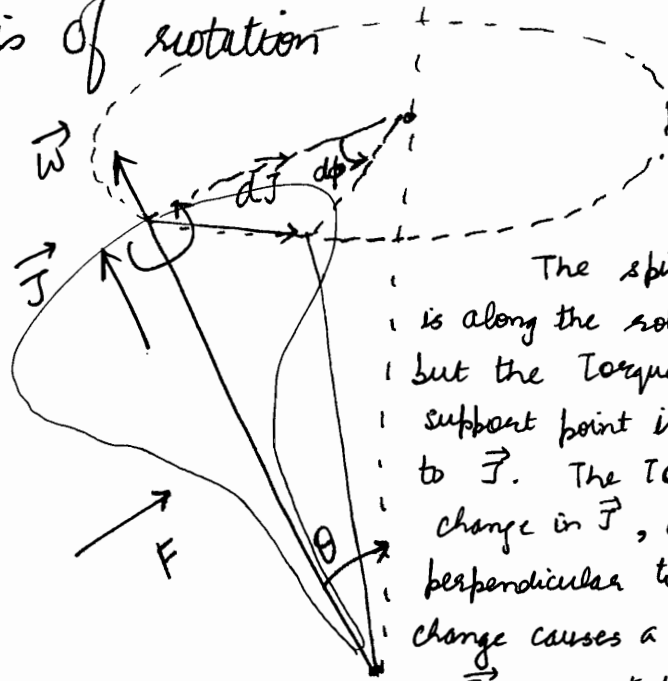 is of rotation
W
dJ
dϕ
J
The spi
is along the ro
but the Torqu
support point i
to J. The To
change in J,
perpendicular t
change causes a
F
θ